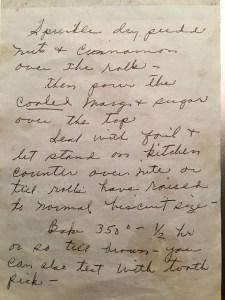 Sprinkle dry pudd
nuts & Cinnamon
over the rolls -
then pour the
cooled marg & sugar
over the top
Seal with foil &
let stand on kitchen
counter over nite or
till rolls have raised
to normal biscuit size -
Bake 350° - 1/2 hr
or so till brown - you
can also test with tooth
pick -